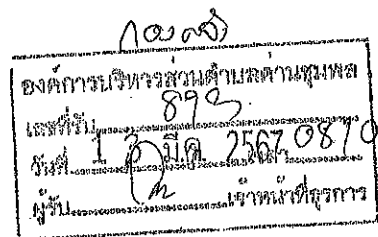 กองคลัง
องค์การบริหารส่วนตำบลด่านชุมพล
เลขที่รับ 893
วันที่ 13 มี.ค. 2567 0870
ผู้รับ เจ้าหน้าที่ธุรการ